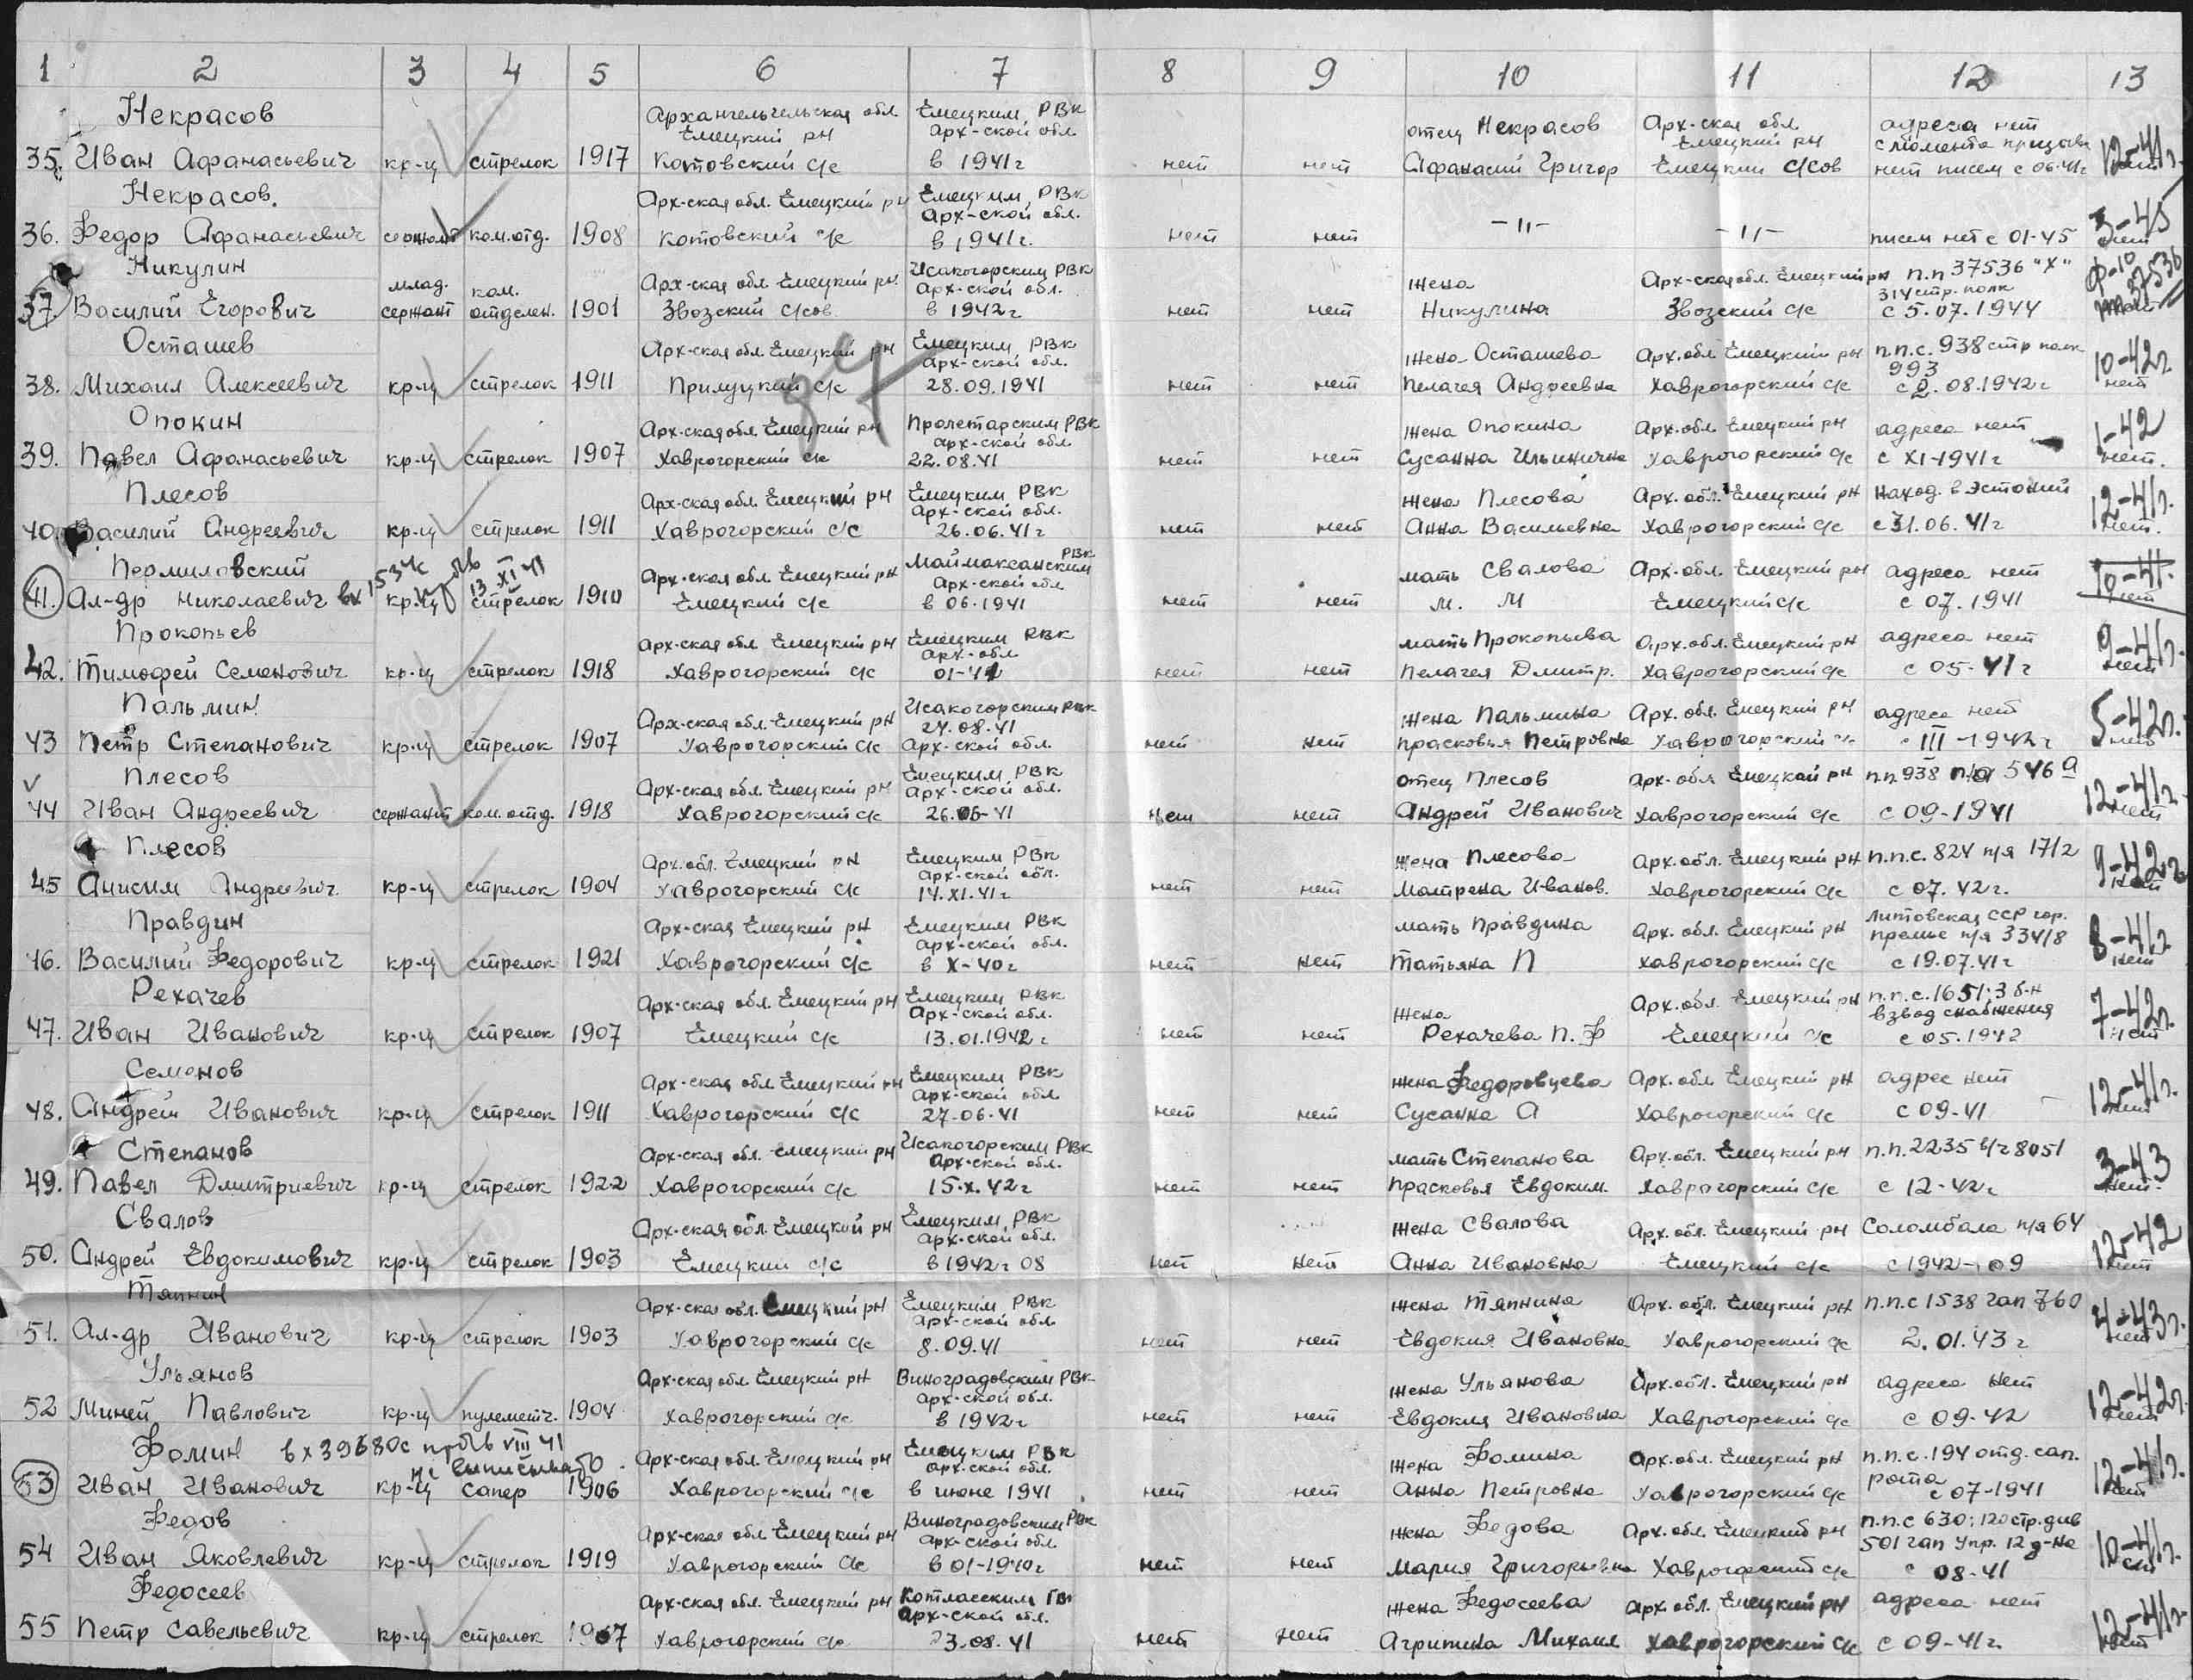 1 2 3 4 5 6 7 8 9 10 11 12 13
Некрасов Архангельчельская обл. Емецким РВК отец Некрасов Арх-ская обл. адреса нет
Емецкий рн Арх-ской обл Емецкий рн с момента призыва 12-41г.
35. Иван Афанасьевич кр-ц стрелок 1917 Котовский с/с в 1941г нет нет Афанасий Григор Емецкий с/сов нет писем с 06-41г нет
Некрасов. Арх-ская обл. Емецкий рн Емецким РВК
Арх-ской обл. -〃- -〃- 3-45
36. Федор Афанасьевич сержант ком.отд. 1908 Котовский с/с в 1941г. нет нет писем нет с 01-45 нет
Никулин млад. ком. Арх-ская обл. Емецкий рн Исакогорским РВК жена Арх-ская обл. Емецкий рн п.п 37536 "Х" ф-10
Арх-ской обл. 314 стр. полк 37536
37. Василий Егорович сержант отделен. 1901 Звозский с/сов в 1942г нет нет Никулина Звозский с/с с 5.07.1944
Осташев Арх-ская обл. Емецкий рн Емецким РВК жена Осташева Арх.обл Емецкий рн п.п.с. 938 стр полк 10-42г
Арх-ской обл. 993
38. Михаил Алексеевич кр-ц стрелок 1911 Прилуцкий с/с 28.09.1941 нет нет Пелагея Андреевна Хаврогорский с/с с 2.08.1942г нет
Опокин Арх-ская обл. Емецкий рн Пролетарским РВК жена Опокина Арх.обл Емецкий рн адреса нет 1-42
Арх-ской обл
39. Павел Афанасьевич кр-ц стрелок 1907 Хаврогорский с/с 22.08.41 нет нет Сусанна Ильинична Хаврогорский с/с с XI-1941г нет.
Плесов Арх-ская обл. Емецкий рн Емецким РВК жена Плесова Арх. обл. Емецкий рн наход. в Эстонии 12-41г.
Арх-ской обл.
40. Василий Андреевич кр-ц стрелок 1911 Хаврогорский с/с 26.06.41г нет нет Анна Васильевна Хаврогорский с/с с 31.06.41г нет.
Пермиловский вх 1534с 13 XI 41 Арх-ская обл Емецкий рн Маймаксанским РВК мать Свалова Арх.обл. Емецкий рн адреса нет 10-41.
Арх-ской обл
41. Ал-др Николаевич кр-ц стрелок 1910 Емецкий с/с в 06.1941 нет нет М. М Емецкий с/с с 07.1941 нет
Прокопьев Арх-ская обл Емецкий рн Емецким РВК мать Прокопьева Арх.обл. Емецкий рн адреса нет 9-41г.
Арх-обл
42. Тимофей Семенович кр-ц стрелок 1918 Хаврогорский с/с 01-41 нет нет Пелагея Дмитр. Хаврогорский с/с с 05-41г нет
Пальмин Арх-ская обл. Емецкий рн Исакогорским РВК жена Пальмина Арх. обл. Емецкий рн адреса нет 5-42г.
24.08.41
43 Петр Степанович кр-ц стрелок 1907 Хаврогорский с/с Арх-ской обл. нет нет Прасковья Петровна Хаврогорский с/с с III-1942г нет
Плесов Арх-ская обл. Емецкий рн Емецким РВК отец Плесов Арх. обл Емецкой рн п.п 938 п/я 546 а 12-41г.
Арх-ской обл.
44 Иван Андреевич сержант ком.отд. 1918 Хаврогорский с/с 26.06-41 нет нет Андрей Иванович Хаврогорский с/с с 09-1941 нет
Плесов Арх.обл. Емецкий рн Емецким РВК жена Плесова Арх.обл. Емецкий рн п.п.с. 824 п/я 17/2 9-42г
Арх-ской обл.
45 Анисим Андреевич кр-ц стрелок 1904 Хаврогорский с/с 14.XI.41г нет нет Матрена Иванов. Хаврогорский с/с с 07.42г. нет
Правдин Арх-ская Емецкий рн Емецким РВК мать Правдина Арх. обл. Емецкий рн Литовская ССР гор. 8-41г
Арх-ской обл. п/я 334/8
46. Василий Федорович кр-ц стрелок 1921 Хаврогорский с/с в X-40г нет нет Татьяна П Хаврогорский с/с с 19.07.41г нет
Рехачев Арх-ская обл. Емецкий рн Емецким РВК жена Арх.обл. Емецкий рн п.п.с.1651; 3 б-н 7-42г.
Арх-ской обл. взвод снабжения
47. Иван Иванович кр-ц стрелок 1907 Емецкий с/с 13.01.1942г нет нет Рехачева П. Ф Емецкий с/с с 05.1942 нет
Семенов Арх-ская обл Емецкий рн Емецким РВК жена Федоровцева Арх.обл Емецкий рн адрес нет 12-41г.
Арх-ской обл
48. Андрей Иванович кр-ц стрелок 1911 Хаврогорский с/с 27.06.41 нет нет Сусанна А Хаврогорский с/с с 09-41 нет
Степанов Арх-ская обл. Емецкий рн Исакогорским РВК мать Степанова Арх.обл. Емецкий рн п.п.2235 в/ч 8051 3-43
Арх-ской обл.
49. Павел Дмитриевич кр-ц стрелок 1922 Хаврогорский с/с 15.X.42г нет нет Прасковья Евдоким. Хаврогорский с/с с 12-42г нет.
Свалов Арх-ская обл. Емецкий рн Емецким РВК жена Свалова Арх. обл. Емецкий рн Соломбала п/я 64 12-42
Арх-ской обл.
50. Андрей Евдокимович кр-ц стрелок 1903 Емецкий с/с в 1942г 08 нет нет Анна Ивановна Емецкий с/с с 1942-09 нет
Тяпнин Арх-ская обл. Емецкий рн Емецким РВК жена Тяпнина Арх. обл. Емецкий рн п.п.с 1538 гап 760 4-43г.
Арх-ской обл
51. Ал-др Иванович кр-ц стрелок 1903 Хаврогорский с/с 8.09.41 нет нет Евдокия Ивановна Хаврогорский с/с 2.01.43г нет
Ульянов Арх-ская обл Емецкий рн Виноградовским РВК жена Ульянова Арх.обл. Емецкий рн адреса нет 12-42г.
Арх-ской обл.
52 Миней Павлович кр-ц пулеметч. 1904 Хаврогорский с/с в 1942г нет нет Евдокия Ивановна Хаврогорский с/с с 09-42 нет
Фомин вх 39680с VIII 41 Арх-ская обл. Емецкий рн Емецким РВК жена Фомина Арх.обл. Емецкий рн п.п.с.194 отд. сап. 12-41г.
Арх-ской обл. рота
53 Иван Иванович кр-ц сапер 1906 Хаврогорский с/с в июне 1941 нет нет Анна Петровна Хаврогорский с/с с 07-1941 нет
Федов Арх-ская обл Емецкий рн Виноградовским РВК жена Федова Арх.обл. Емецкий рн п.п.с 630; 120 стр.див 10-41г.
Арх-ской обл 501 гап Упр. 12 д-на
54 Иван Яковлевич кр-ц стрелок 1919 Хаврогорский с/с в 01-1940г нет нет Мария Григорьевна Хаврогорский с/с с 08-41 нет
Федосеев Арх-ская обл. Емецкий рн Котласским ГВК жена Федосеева Арх.обл. Емецкий рн адреса нет 12-41г
Арх-ской обл.
55 Петр Савельевич кр-ц стрелок 1907 Хаврогорский с/с 23.08.41 нет нет Агрипина Михаил Хаврогорский с/с с 09-41г. нет